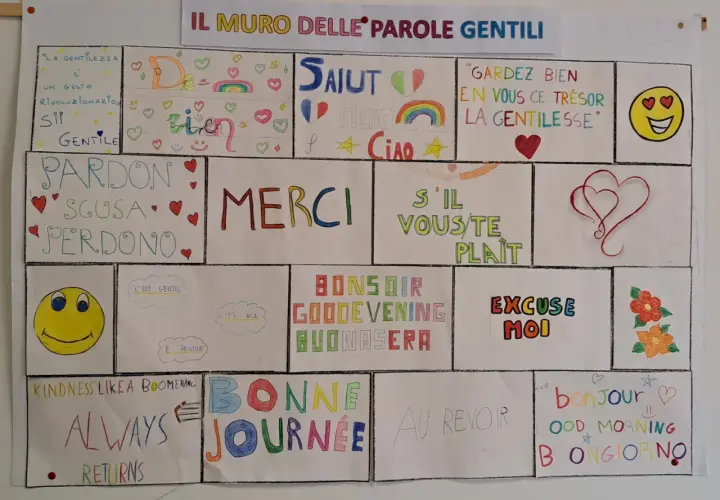 IL MURO DELLE PAROLE GENTILI
"LA GENTILEZZA
È
UN GESTO
RIVOLUZIONARIO"
SII
GENTILE
De
rien
SALUT
Hello
CIAO
"GARDEZ BIEN
EN VOUS CE TRÉSOR
LA GENTILESSE"
PARDON
SCUSA
PERDONO
MERCI
S'IL
VOUS/TE
PLAÎT
C'EST GENTIL
IT'S NICE
È GENTILE
BONSOIR
GOODEVENING
BUONASERA
EXCUSE
MOI
KINDNESS LIKE A BOOMERANG
ALWAYS
RETURNS
BONNE
JOURNÉE
AU REVOIR
bonjour
OOD MORNING
B ONGIORNO